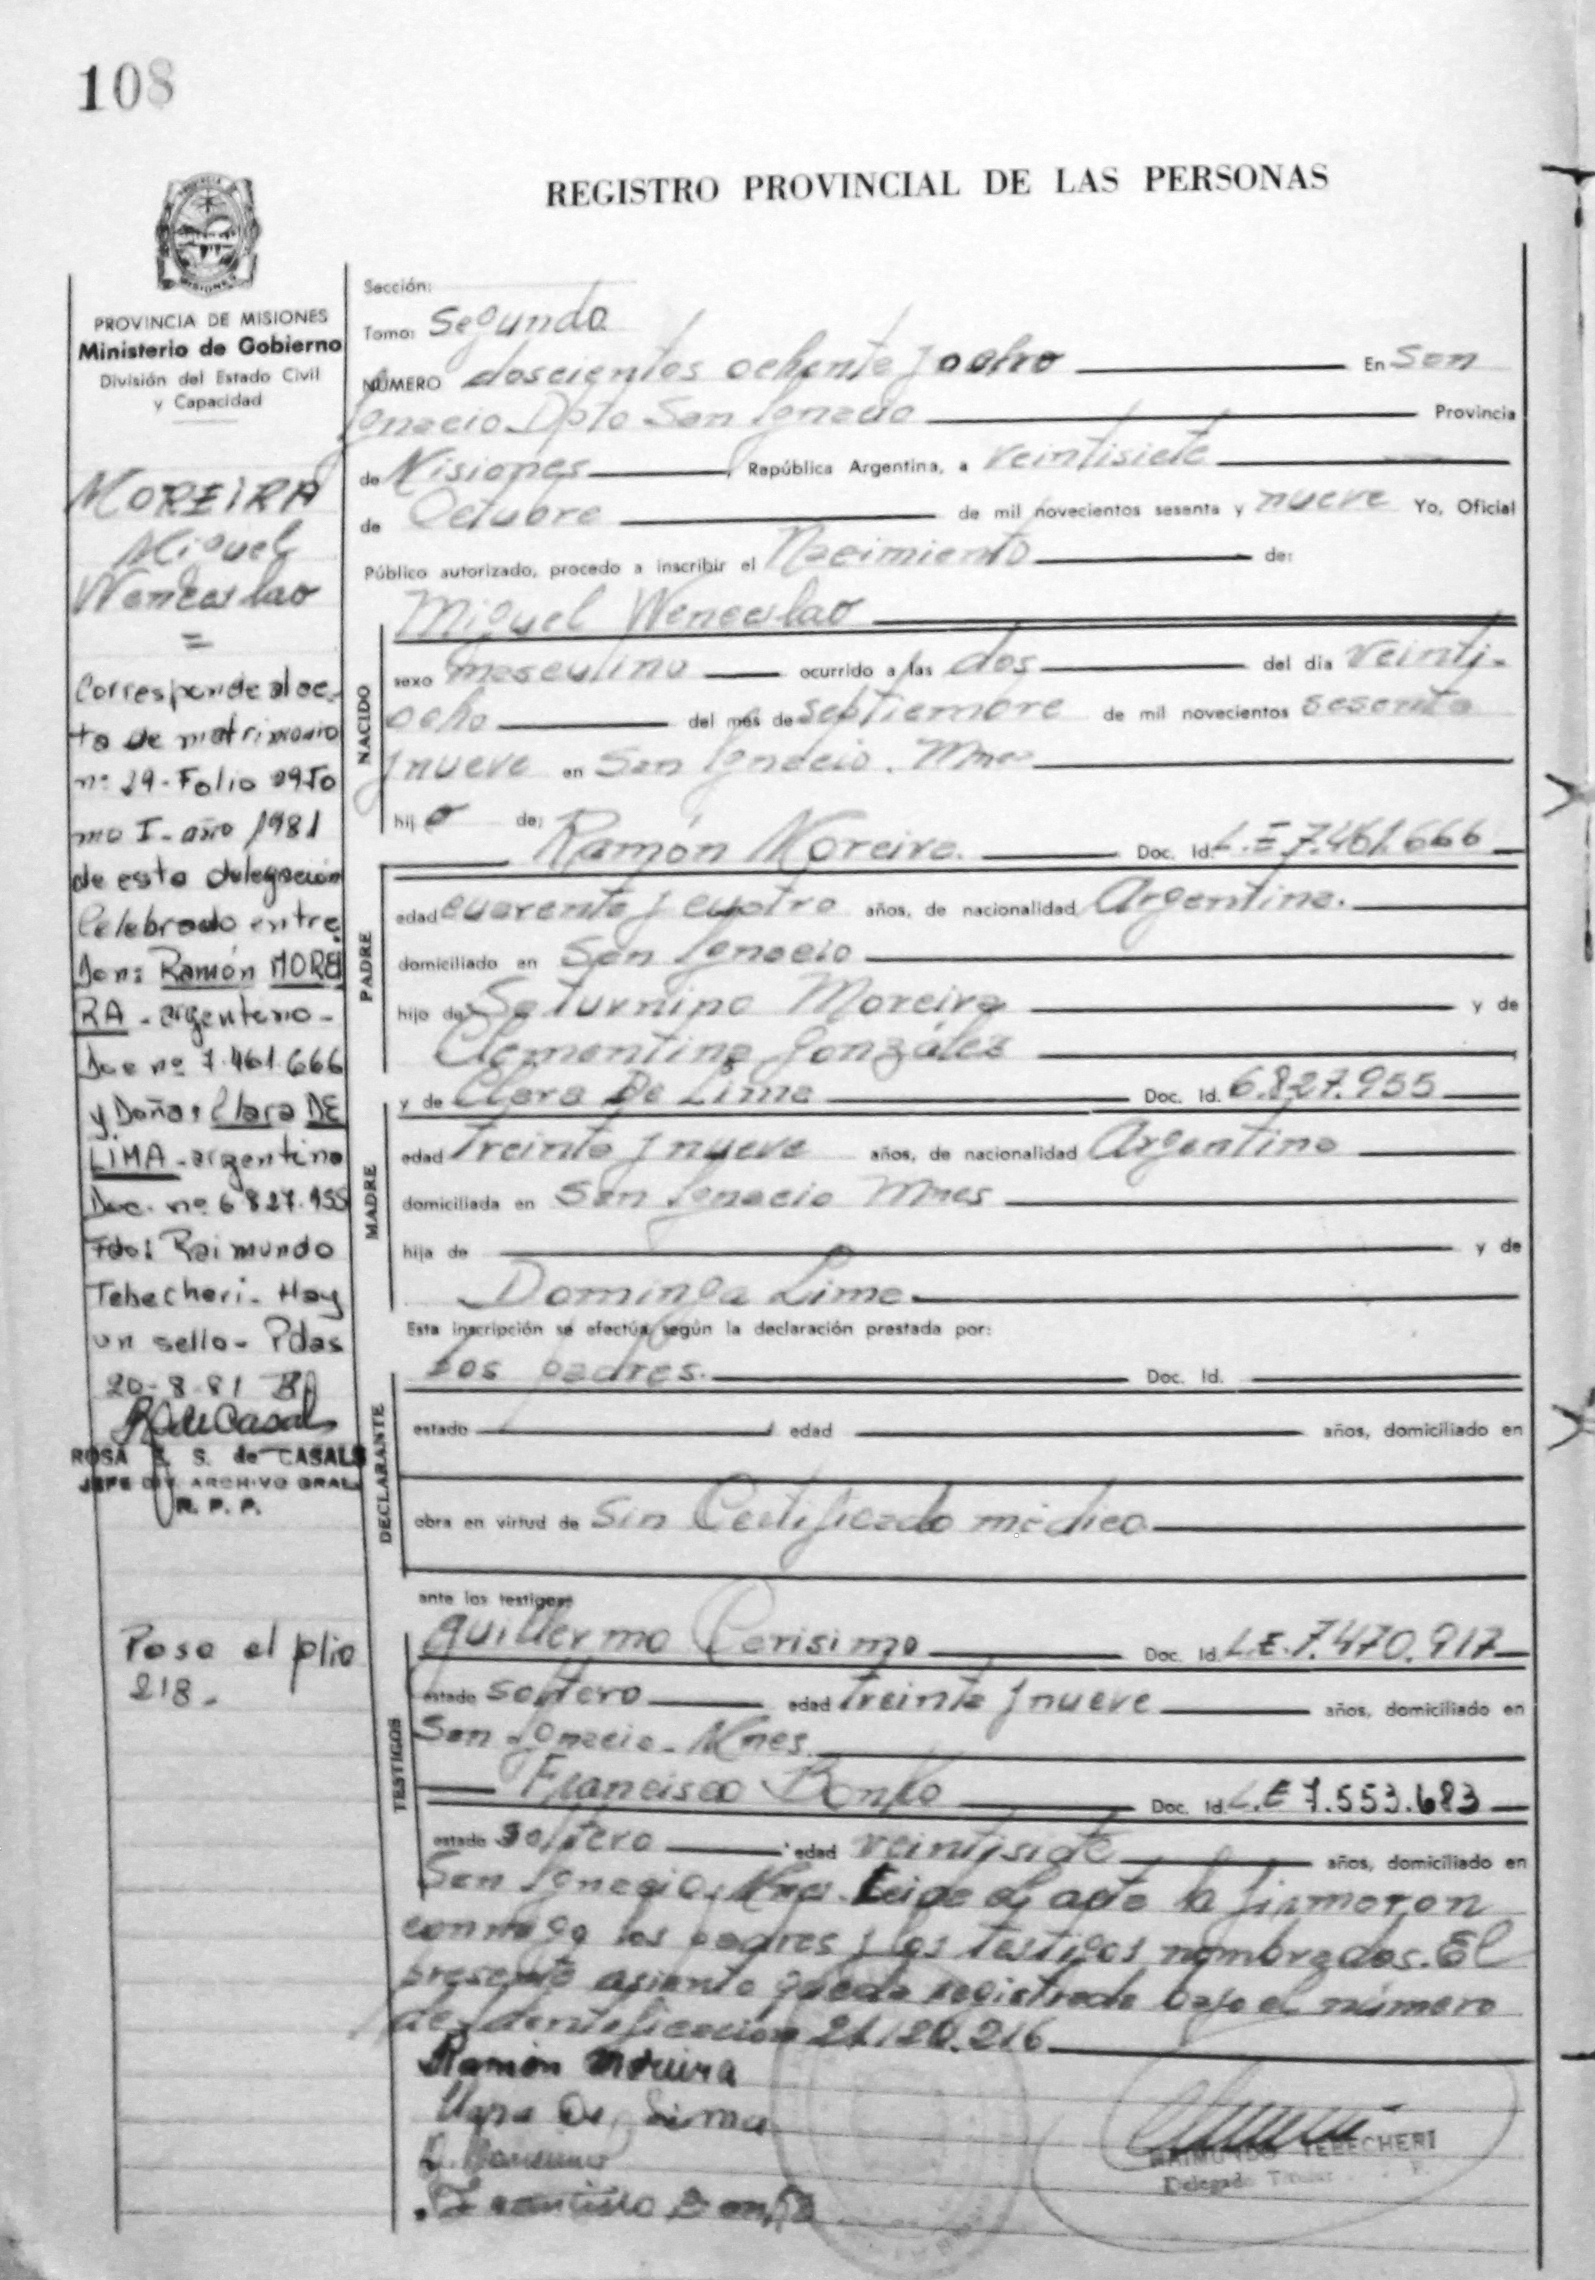 108
REGISTRO PROVINCIAL DE LAS PERSONAS
PROVINCIA DE MISIONES
Ministerio de Gobierno
División del Estado Civil
y Capacidad
MOREIRA
Miguel
Wenceslao
=
Corresponde al ac-
ta de matrimonio
nº 29-Folio 29To
mo I-año 1981
de esta delegación
Celebrado entre
Don: Ramón MOREI
RA - argentino -
Doc nº 7.461.666
y Doña: Clara DE
LIMA - argentina
Doc. nº 6.827.955
Fdo: Raimundo
Tebecheri - Hay
un sello - Pdas
20-8-81
ROSA S. de CASALS
JEFE DIV. ARCHIVO GRAL.
R. P. P.
Pase el plio
218.
Sección:
Tomo: Segundo
NÚMERO doscientos ochenta y ocho En San
Ignacio Dpto San Ignacio Provincia
de Misiones, República Argentina, a veintisiete
de Octubre de mil novecientos sesenta y nueve Yo, Oficial
Público autorizado, procedo a inscribir el Nacimiento de:
Miguel Wenceslao
NACIDO
sexo masculino ocurrido a las dos del día veinti-
ocho del mes de septiembre de mil novecientos sesenta
y nueve en San Ignacio. Mnes
hijo de: Ramón Moreira. Doc. Id. L.E 7.461.666
PADRE
edad cuarenta y cuatro años, de nacionalidad Argentina.
domiciliado en San Ignacio
hijo de Saturnino Moreira y de
Clementina González
y de Clara De Lima Doc. Id. 6.827.955
MADRE
edad treinta y nueve años, de nacionalidad Argentina
domiciliada en San Ignacio Mnes
hija de y de
Dominga Lima
Esta inscripción se efectúa según la declaración prestada por:
Los padres. Doc. Id.
DECLARANTE
estado edad años, domiciliado en
obra en virtud de Sin Certificado médico
ante los testigos:
Guillermo Cerisimo Doc. Id. L.E. 7.470.917
TESTIGOS
estado soltero edad treinta y nueve años, domiciliado en
San Ignacio - Mnes
Francisco Doc. Id. L.E 7.553.683
estado soltero edad veintisiete años, domiciliado en
San Ignacio, Mnes. Leida el acta la firmaron
conmigo los padres y los testigos nombrados. El
presente asiento queda registrado bajo el número
de Identificación 21.120.216
Ramón Moreira
Clara De Lima
RAIMUNDO TEBECHERI
Delegado Titular